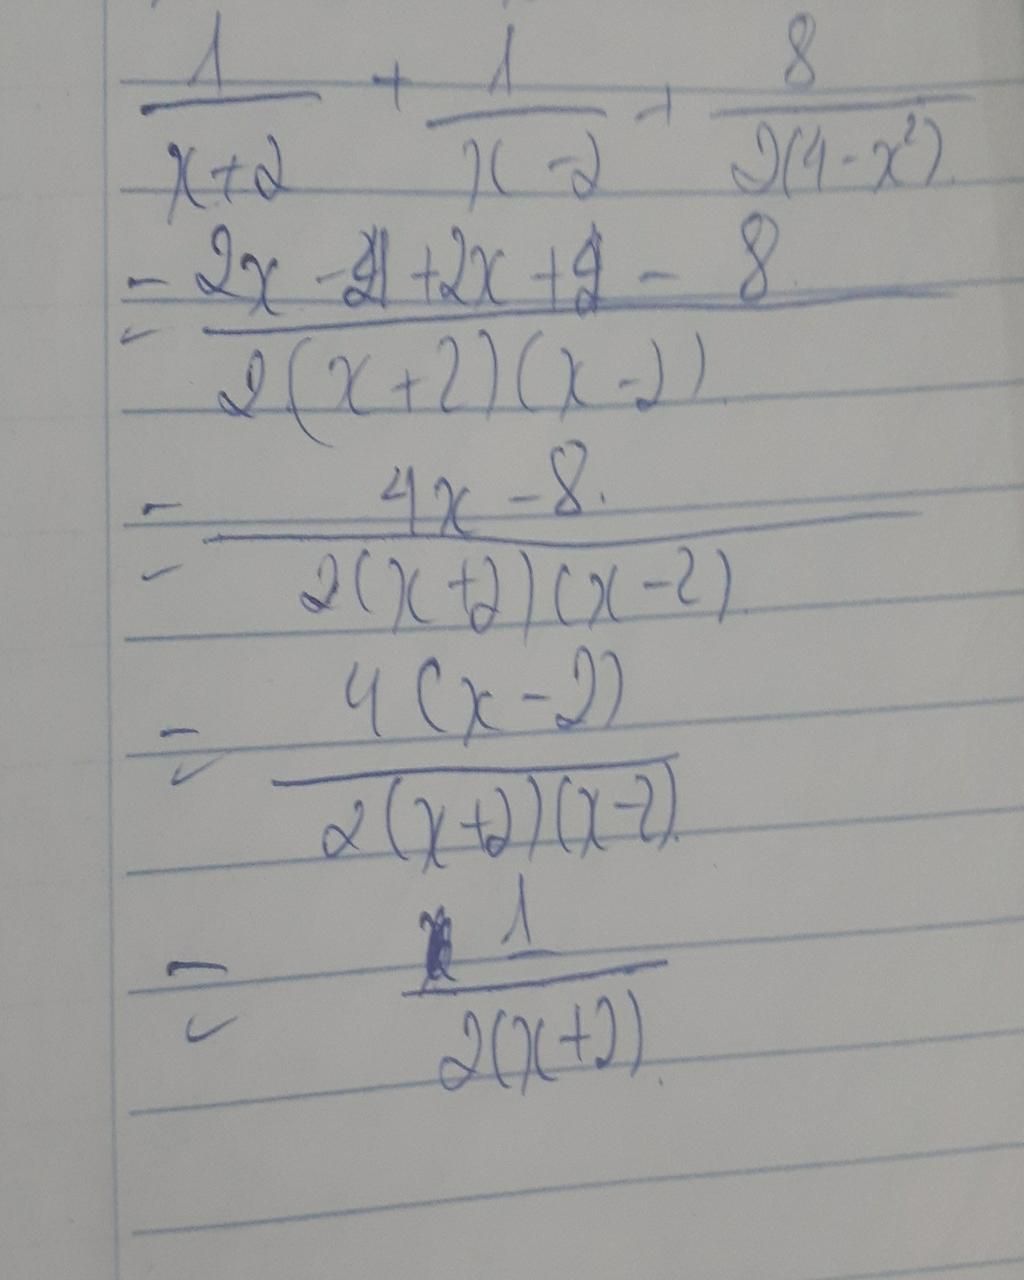 1/(x+2) + 1/(x-2) + 8/(2(4-x²))
= (2x - 4 + 2x + 4 - 8)/(2(x+2)(x-2))
= (4x - 8)/(2(x+2)(x-2))
= 4(x-2)/(2(x+2)(x-2))
= 1/(2(x+2))